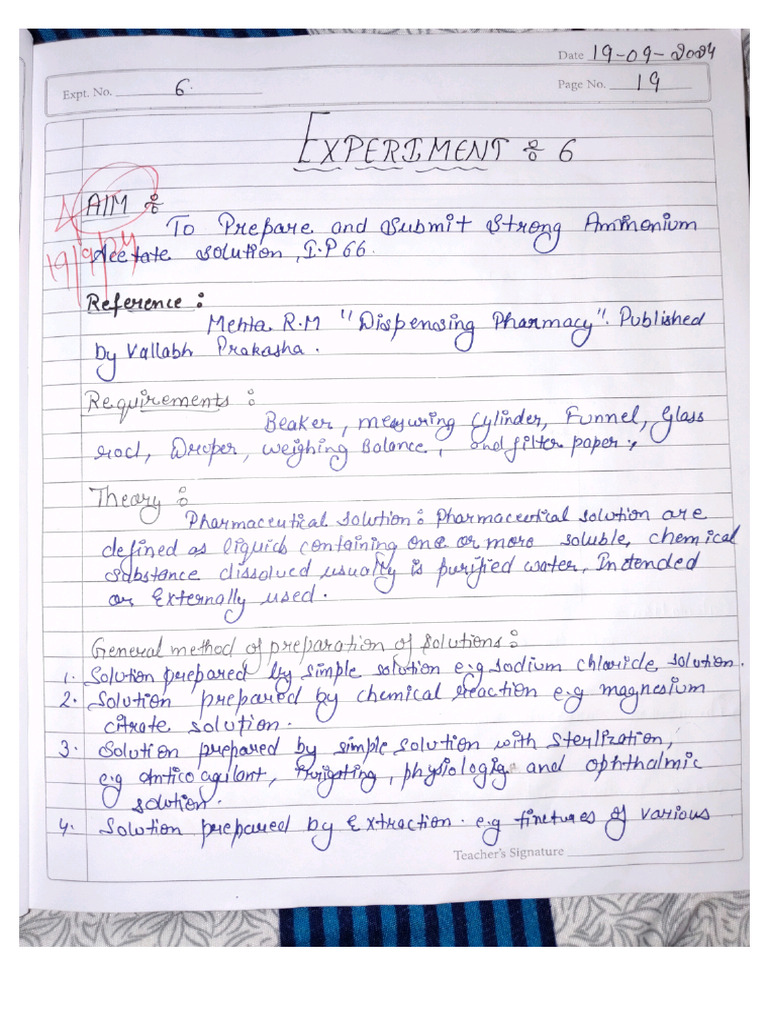 Date 19-09-2024
Expt. No. 6.
Page No. 19
EXPERIMENT : 6
AIM :
To Prepare and Submit Strong Ammonium
Acetate Solution, I.P 66.
19/9/24
Reference :
Mehta R.M "Dispensing Pharmacy". Published
by Vallabh Prakasha.
Requirements :
Beaker, measuring Cylinder, Funnel, Glass
rod, Droper, weighing Balance, and filter paper.
Theory :
Pharmaceutical Solution : Pharmaceutical solution are
defined as liquids containing one or more soluble, chemical
substance dissolved usually is purified water, Intended
or Externally used.
General method of preparation of Solutions :
1. Solution prepared by simple solution e.g sodium chloride solution.
2. Solution prepared by chemical reaction e.g magnesium
citrate solution.
3. Solution prepared by simple solution with sterlization,
e.g anticoagilant, Irrigating, physiologic and ophthalmic
solution.
4. Solution prepared by Extraction. e.g tinctures of various
Teacher's Signature